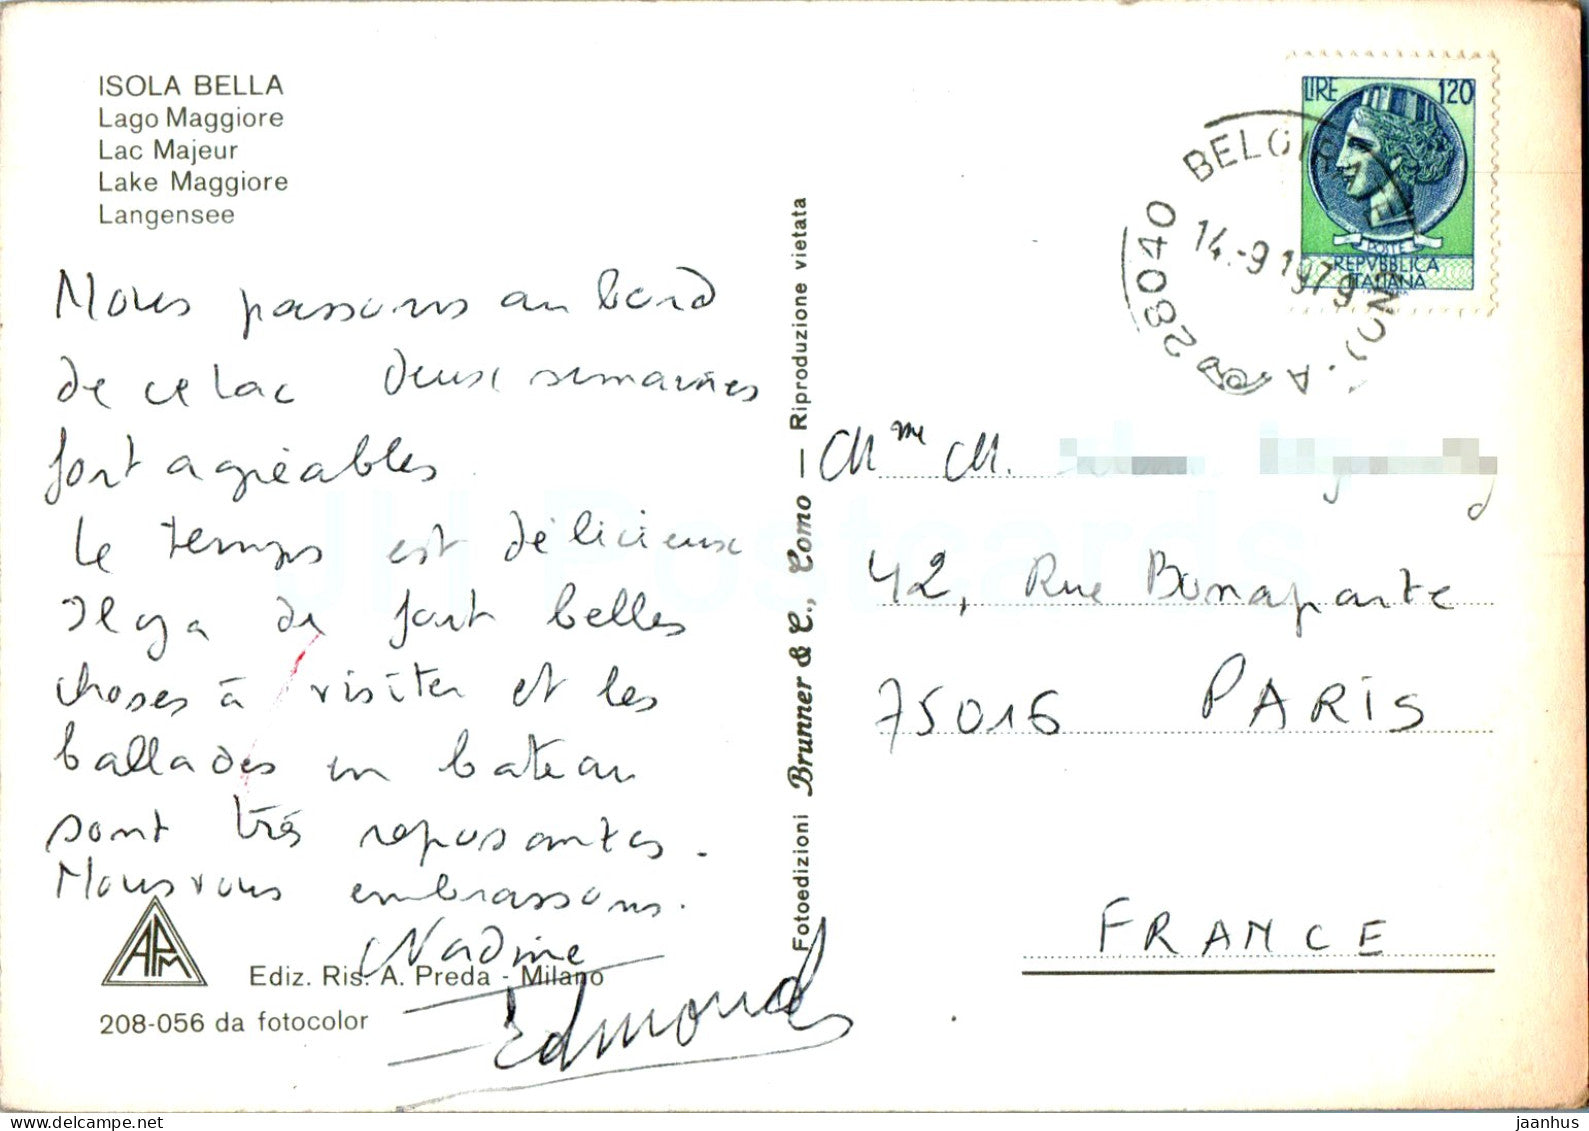 ISOLA BELLA
Lago Maggiore
Lac Majeur
Lake Maggiore
Langensee
Nous passons au bord
de ce lac deux semaines
fort agréables
Le temps est délicieux
Il y a de fort belles
choses à visiter et les
ballades en bateau
sont très reposantes.
Nous vous embrassons.
Nadine
Edmond
APM
Ediz. Ris. A. Preda - Milano
208-056 da fotocolor
Fotoedizioni Brunner & C., Como — Riproduzione vietata
LIRE 120
POSTE
REPVBBLICA
ITALIANA
28040 BELGIRATE
14.-9 1979
Mme M.
42, Rue Bonaparte
75016 PARIS
FRANCE
JH Postcards
jaanhus